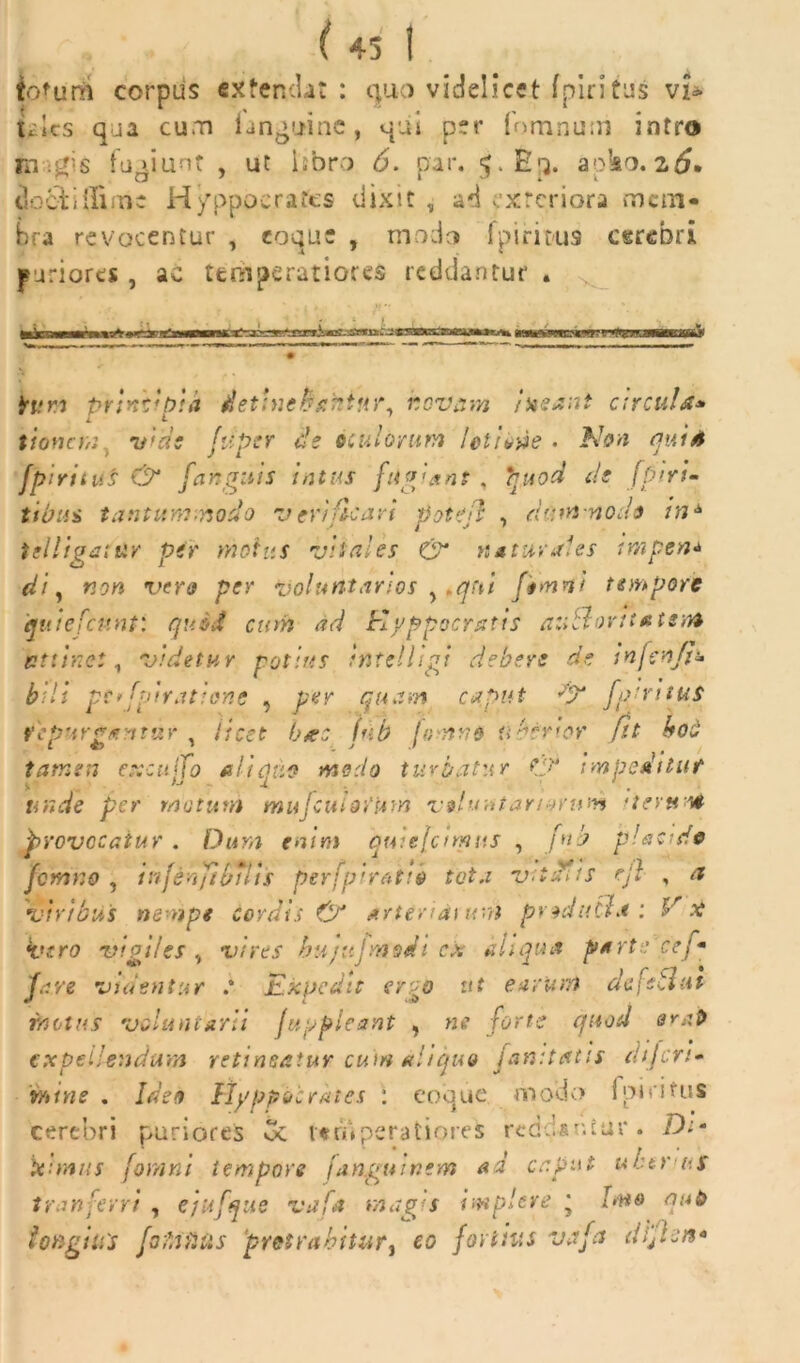 ( 45 )
totum corpus extendat : quo videlicet ſpiritus vi-
tales qua cum ſanguine, qui per ſomnum intro
magis fugiunt , ut libro 6. par. 5. Ep. apho. 26.
doctiſſime Hyppocrates dixit , ad exteriora mem-
bra revocentur , eoque , modo ſpiritus cerebri
puriores , ac temperatiores reddantur .
rum principia detinebantur, novam ineant circula-
tionem, vide ſuper de oculorum lotione . Non quia
ſpiritus & ſanguis intus fugiant , quod de ſpiri-
tibus tantummodo verificari poteſt , dummodo in-
telligatur per motus vitales & naturales impen-
di, non vero per voluntarios , qui ſomni tempore
quieſcunt: quod cum ad Hyppocratis auctoritatem
attinet, videtur potius intelligi debere de inſenſi-
bili perſpiratione , per quam caput & ſpiritus
repurgantur , licet hæc ſub ſomno uberior ſit hoc
tamen excuſſo aliquo modo turbatur & impeditur
unde per motum muſculorum voluntariorum iterum
provocatur . Dum enim quieſcimus , ſub placido
ſomno , inſenſibilis perſpiratio tota vitalis eſt , a
viribus nempe cordis & arteriarum producta : Vix
vero vigiles , vires hujuſmodi ex aliqua parte ceſ-
ſare videntur : Expedit ergo ut earum defectui
motus voluntarii ſuppleant , ne forte quod erat
expellendum retineatur cum aliquo ſanitatis diſcri-
mine . Ideo Hyppocrates : eoque modo ſpiritus
cerebri puriores & temperatiores reddantur . Di-
ximus ſomni tempore ſanguinem ad caput uberius
tranferri , ejuſque vaſa magis implere ; Imo quo
longius ſomnus protrahitur, eo fortius vaſa diſten-